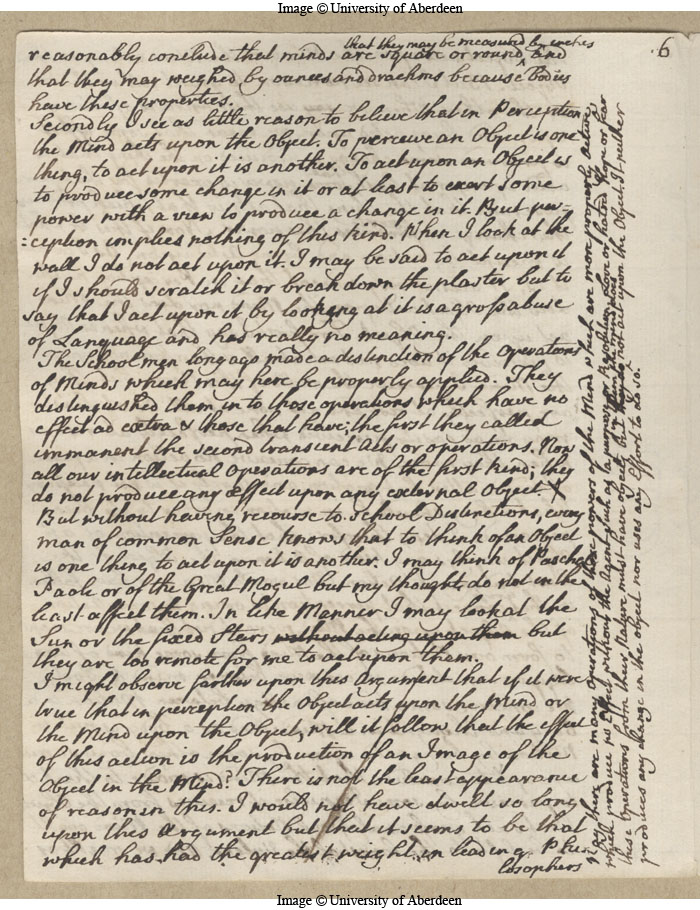 Image © University of Aberdeen
6
reasonably conclude that minds are square or round, ‸ and
that they may be measured by inches
that they may weighed by ounces and drachms because Bodies
have these properties.
Secondly I see as little reason to believe that in Perception
the Mind acts upon the Object. To perceive an Object is one
thing, to act upon it is another. To act upon an Object is
to produce some change in it or at least to exert some
power with a view to produce a change in it. But per-
:ception implies nothing of this kind. When I look at the
wall I do not act upon it. I may be said to act upon it
if I should scratch it or break down the plaster but to
say that I act upon it by looking at it is a gross abuse
of Language and has really no meaning.
The School men long ago made a distinction of the Operations
of Minds which may here be properly applied. They
distinguished them in to those operations which have no
effect ad extra & those that have; the first they called
immanent the second transient Acts or operations. Now
all our intellectual Operations are of the first kind; they
do not produce any effect upon any external Object. X
But without having recourse to School Distinctions, every
man of common Sense knows that to think of an Object
is one thing to act upon it is another. I may think of Paschal
Paoli or of the Great Mogul but my thought do not in the
least affect them. In like Manner I may look at the
Sun or the fixed Stars without acting upon them but
they are too remote for me to act upon them.
I might observe farther upon this Argument that if it were
true that in perception the Object acts upon the Mind or
the Mind upon the Object, will it follow that the effect
of this action is the production of an Image of the
Object in the Mind? There is not the least appearance
of reason in this. I would not have dwelt so long
upon this Argument but that it seems to be that
which has had the greatest weight in leading Phi-
losophers
X Nay there are many operations of those powers of the Mind which are more properly active,
which produce no Effect without the Agent, Such as a purpose or Resolution, Love or hatred, hope or fear
these operations from their Nature must have objects but do not act upon the Object. I neither
produces any change in the object nor uses any Effort to do so.
Image © University of Aberdeen